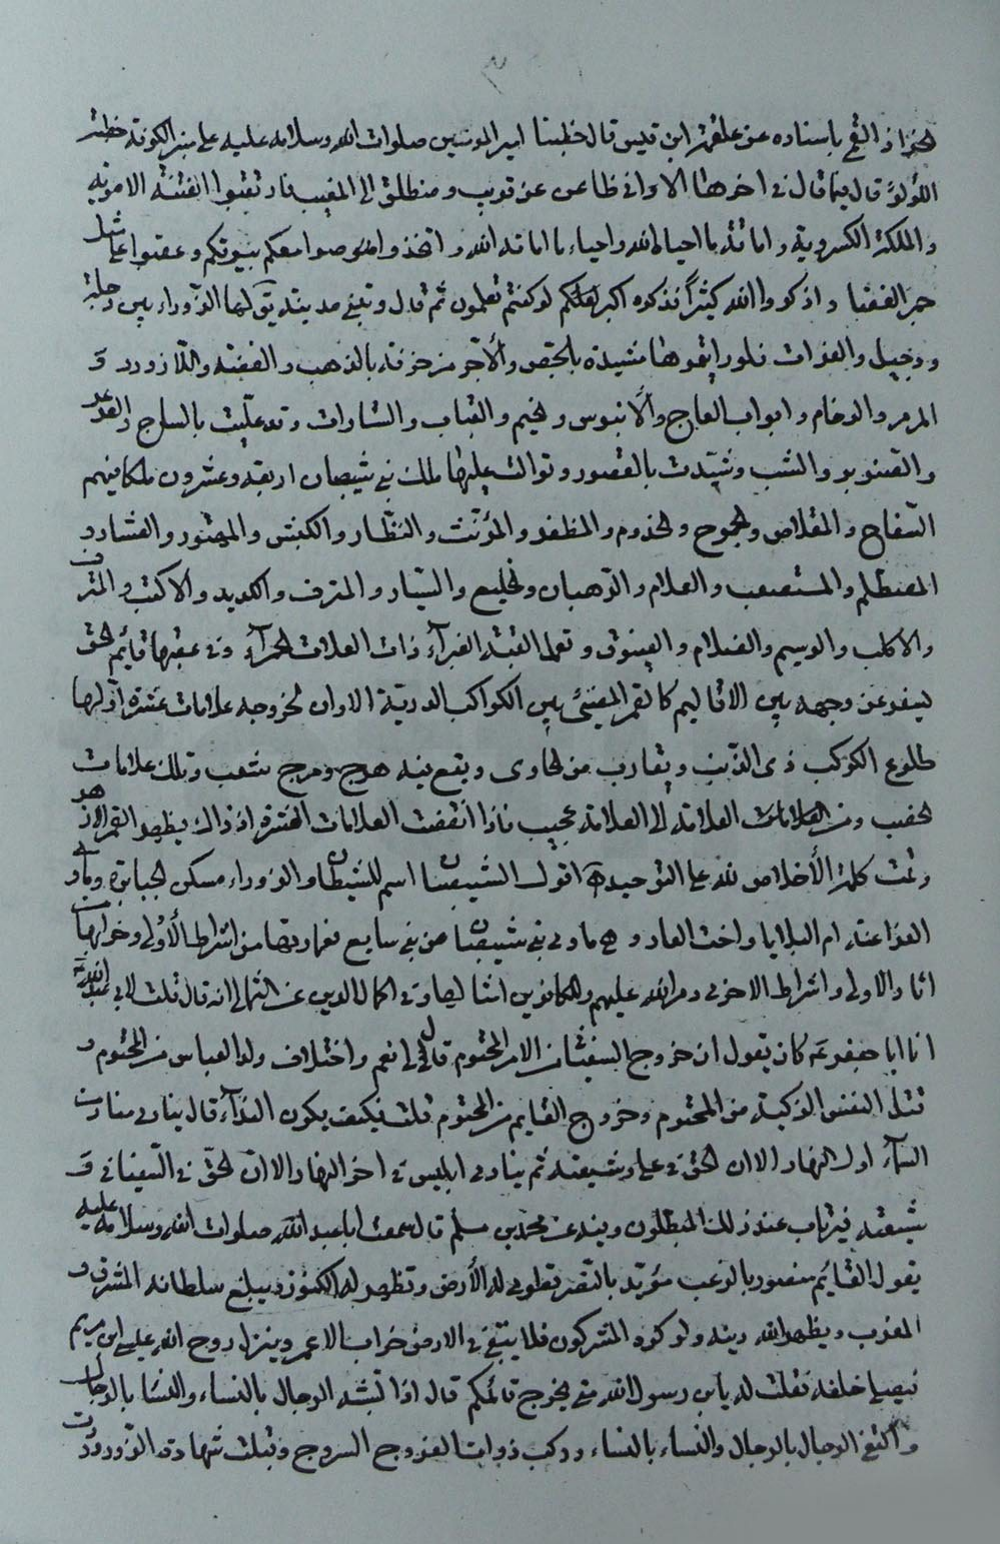 الخزاز القمي باسناده عن علقمة ابن قيس قال خطبنا امير المؤمنين صلوات الله وسلامه عليه على منبر الكوفة خطبة
اللؤلؤة قال فيما قال في اخرها الا واني ظاعن عن قريب ومنطلق الى المغيب فارتقبوا الفتنة الاموية
والمملكة الكسروية واماتة ما احياه الله واحياء ما اماته الله واتخذوا صوامعكم بيوتكم وعضوا على مثل
جمر الغضا واذكروا الله كثيرا فذكره اكبر لو كنتم تعلمون ثم قال وتبنى مدينة يق لها الزوراء بين دجلة
ودجيل والفرات فلو رايتموها مشيدة بالجص والآجر مزخرفة بالذهب والفضة واللازورد و
المرمر والرخام وابواب العاج والآبنوس والخيم والقباب والستارات وقد عليت بالساج والعرعر
والصنوبر والشب وشيدت بالقصور وتوالت عليها ملك بني شيصبان اربعة وعشرون ملكا فيهم
السفاح والمقلاص والجموح والخذوع والمظفر والمؤنث والنظار والكبش والمهتور والعشار و
المصطلم والمستصعب والعلام والرهبان والخليع والسيار والمترف والكديد والاكتب والمترف
والاكلب والوسيم والظلام والعينوق وتعمل القبة الغبرآء ذات الفلاة الحمرآء وفي عقبها قائم الحق
يسفر عن وجهه بين الاقاليم كالقمر المضيئ بين الكواكب الدرية الا وان لخروجه علامات عشرة اولها
طلوع الكوكب ذي الذنب ويقارب من الحاوي ويقع فيه هرج ومرج شغب وتلك علامات
الخصب ومن العلامة الى العلامة عجيب فاذا انقضت العلامات العشرة اذ ذاك يظهر القمر الازهر
وتمت كلمة الأخلاص لله على التوحيد اقول الشيصبان اسم للشيطان والزوراء مسكن الجبابرة
ام البلايا واخت العار و هي مأوى بني شيصبان من بني سابع فعمارتها من اشراط الأولى وخرابها
اثار الاولى واشراط الاخرى دمر الله عليهم وللكافرين امثالها وفي اكمال الدين عن الثمالي انه قال قلت لابي عبد الله ع
ان ابا جعفر ع كان يقول ان خروج السفياني من الامر المحتوم قال لي نعم واختلاف ولد العباس من المحتوم و
قتل النفس الزكية من المحتوم وخروج القايم من المحتوم قلت فكيف يكون الندآء قال ينادي مناد من
السمآء اول النهار الا ان الحق في علي وشيعته ثم ينادي ابليس في اخر النهار الا ان الحق في السفياني و
شيعته فيرتاب عند ذلك المبطلون وفيه عن محمد بن مسلم قال سمعت ابا عبد الله صلوات الله وسلامه عليه
يقول القايم منصور بالرعب مؤيد بالنصر تطوى له الأرض وتظهر له الكنوز ويبلغ سلطانه المشرق و
المغرب ويظهر الله دينه ولو كره المشركون فلا يبقى في الارض خراب الا عمر وينزل روح الله عيسى ابن مريم
فيصلي خلفه فقلت له يابن رسول الله متى يخرج قائمكم قال اذا تشبه الرجال بالنساء والنسا بالرجال
واكتفى الرجال بالرجال والنساء بالنساء وركب ذوات الفروج السروج وقبلت شهادة الزور وردت